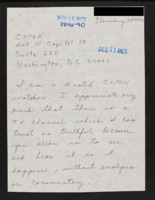 NOV 18 1992
C SPAN
400 N Capitol St
Suite 650
Washington, D.C. 20001
DEC 12 1992
I am a devoted CSPAN
watcher. I appreciate very
much that there is a
TV channel which I can
trust as truthful because
you allow us to see
as it
happens, without analysis
or commentary.